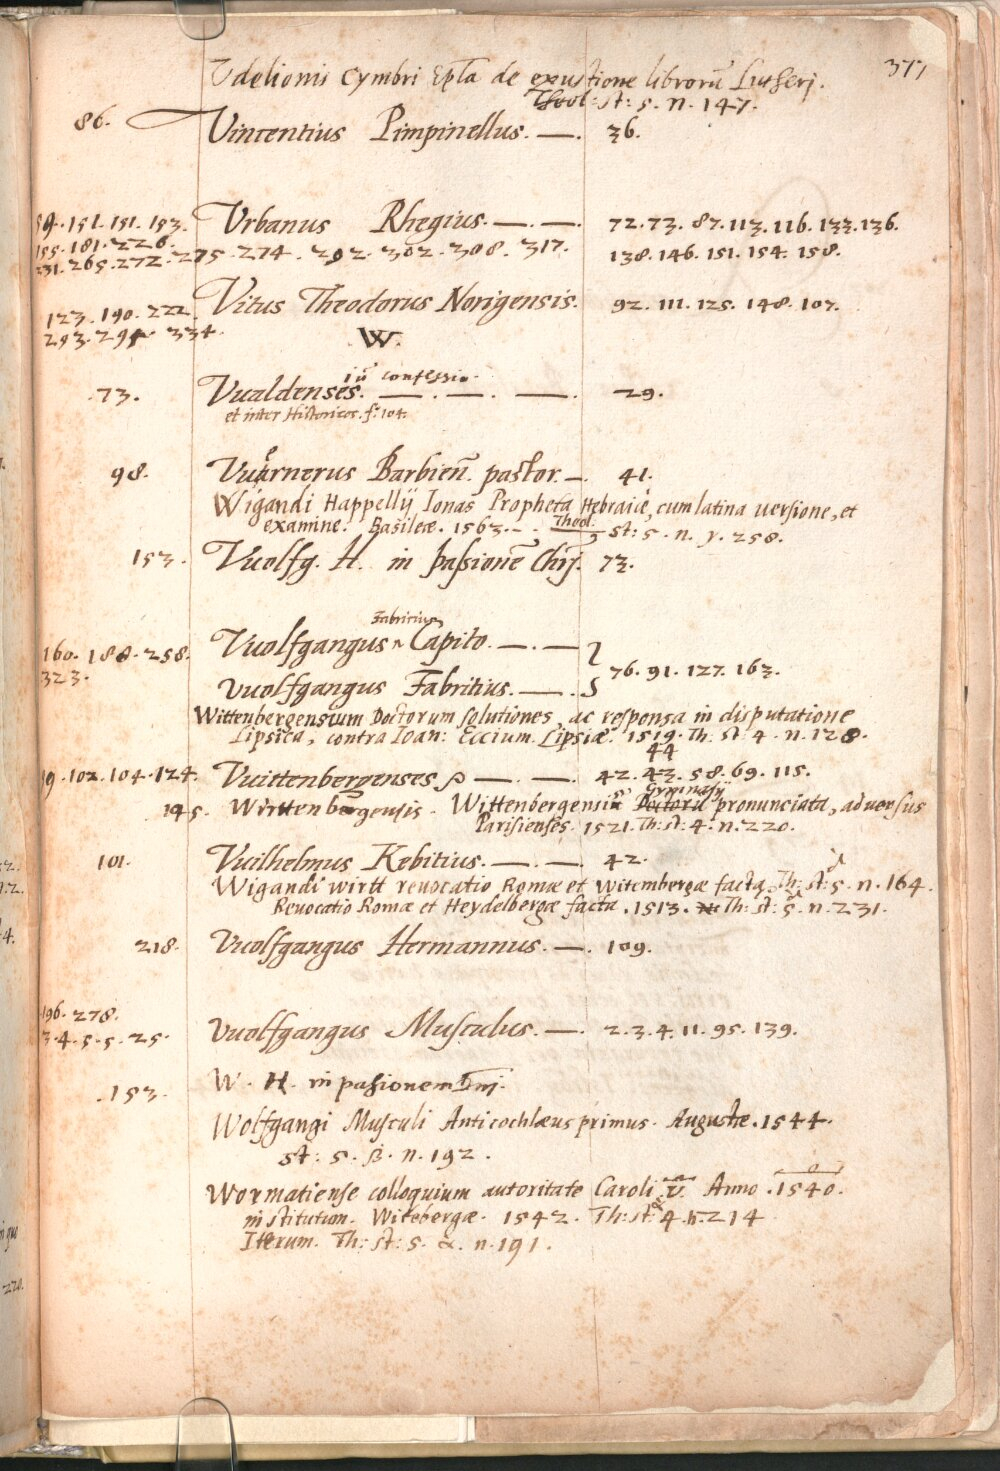 377
Vdelionis Cymbri Epl̃a de exustione librorũ Lutheri.
Theol: st: 5. n. 147.
86. Vincentius Pimpinellus. —. 36.
59. 151. 151. 153. Vrbanus Rhegius. —. —. 72. 73. 87. 113. 116. 133. 136.
155. 181. 226.
231. 265. 272. 275. 274. 292. 302. 308. 317. 138. 146. 151. 154. 158.
123. 190. 222. Vitus Theodorus Norigensis. 92. 111. 125. 148. 107.
293. 294. 334.
W.
iũ confessio.
73. Vualdenses. —. —. —. 29.
et inter Historicos. f. 104.
98. Vuernerus Barbieñ. pastor. —. 41.
Wigandi Happellij Ionas Propheta Hebraicè, cum latina versione, et
examine. Basileæ. 1563. - . Theol. st: 5. n. γ. 258.
153. Vuolfg. H. in passionẽ Chri̅. 73.
Fabritius
160. 188. 258. Vuolfgangus ^ Capito. —. —
323. 76. 91. 127. 163.
Vuolfgangus Fabritius. —.
Wittenbergensium Doctorum solutiones, ac responsa in disputatione
Lipsica, contra Ioan: Eccium. Lipsiæ. 1519. Th. st: 4. n. 128.
44
19. 102. 104. 124. Vuittenbergenses. —. —. 42. 43. 58. 69. 115.
Gymnasij
145. Wittenbergensis. Wittenbergensiũ Doctorũ pronunciata, adversus
Parisienses. 1521. Th: st: 4. n. 220.
101. Vuilhelmus Kebitius. —. —. 42.
Wigandi wirtt revocatio Romæ et Witembergæ facta. Th: st: 5. n. 164.
Revocatio Romæ et Heydelbergæ facta. 1513. Th: st: 5. n. 231.
218. Vuolfgangus Hermannus. —. 109.
196. 278.
3. 4. 5. 5. 25. Vuolfgangus Musculus. —. 2. 3. 4. 11. 95. 139.
153. W. H. in passionem Dni̅.
Wolfgangi Musculi Anticochlæus primus. Augustæ. 1544.
st: 5. β. n. 192.
Wormatiense colloquium autoritate Caroli V. Anno. 1540.
institutum. Witebergæ. 1542. Th: st: 4. n. 214
Iterum. Th: st: 5. α. n. 191.